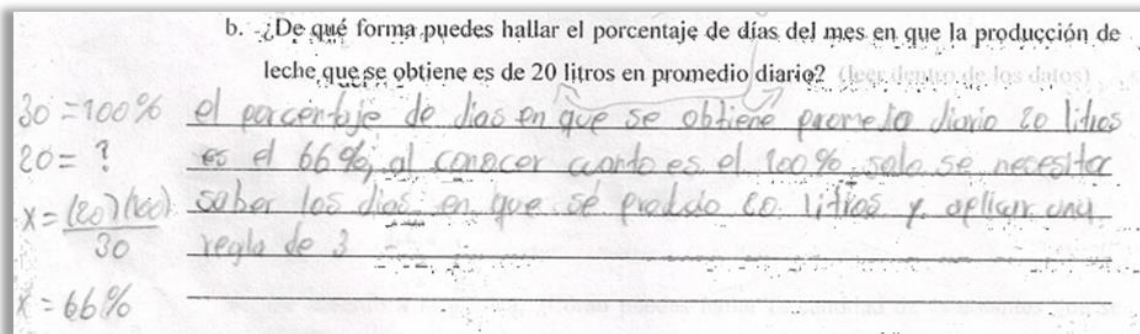 b. ¿De qué forma puedes hallar el porcentaje de días del mes en que la producción de
leche que se obtiene es de 20 litros en promedio diario? (leer dentro de los datos)
30 = 100%
el porcentaje de dias en que se obtiene promedio diario 20 litros
20 = ?
es el 66%, al conocer cuanto es el 100% solo se necesita
x = (20)(100)
30
saber los dias en que se produjo 20 litros y aplicar una
regla de 3
x = 66%